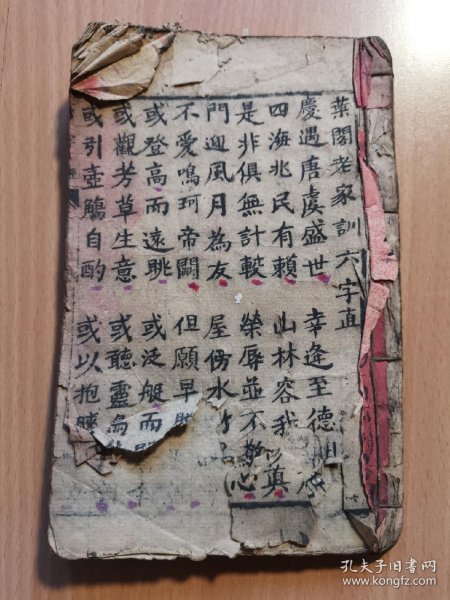 葉閣老家訓六字直
慶遇唐虞盛世 幸逢至德
四海兆民有賴 山林容我
是非俱無計較 榮辱並不驚心
門迎風月為友 屋傍水
不愛鳴珂帝闕 但願早
或登高而遠眺 或泛艇而
或觀芳草生意 或聽靈
或引壺觴自酌 或以抱膝
孔夫子旧书网
www.kongfz.com